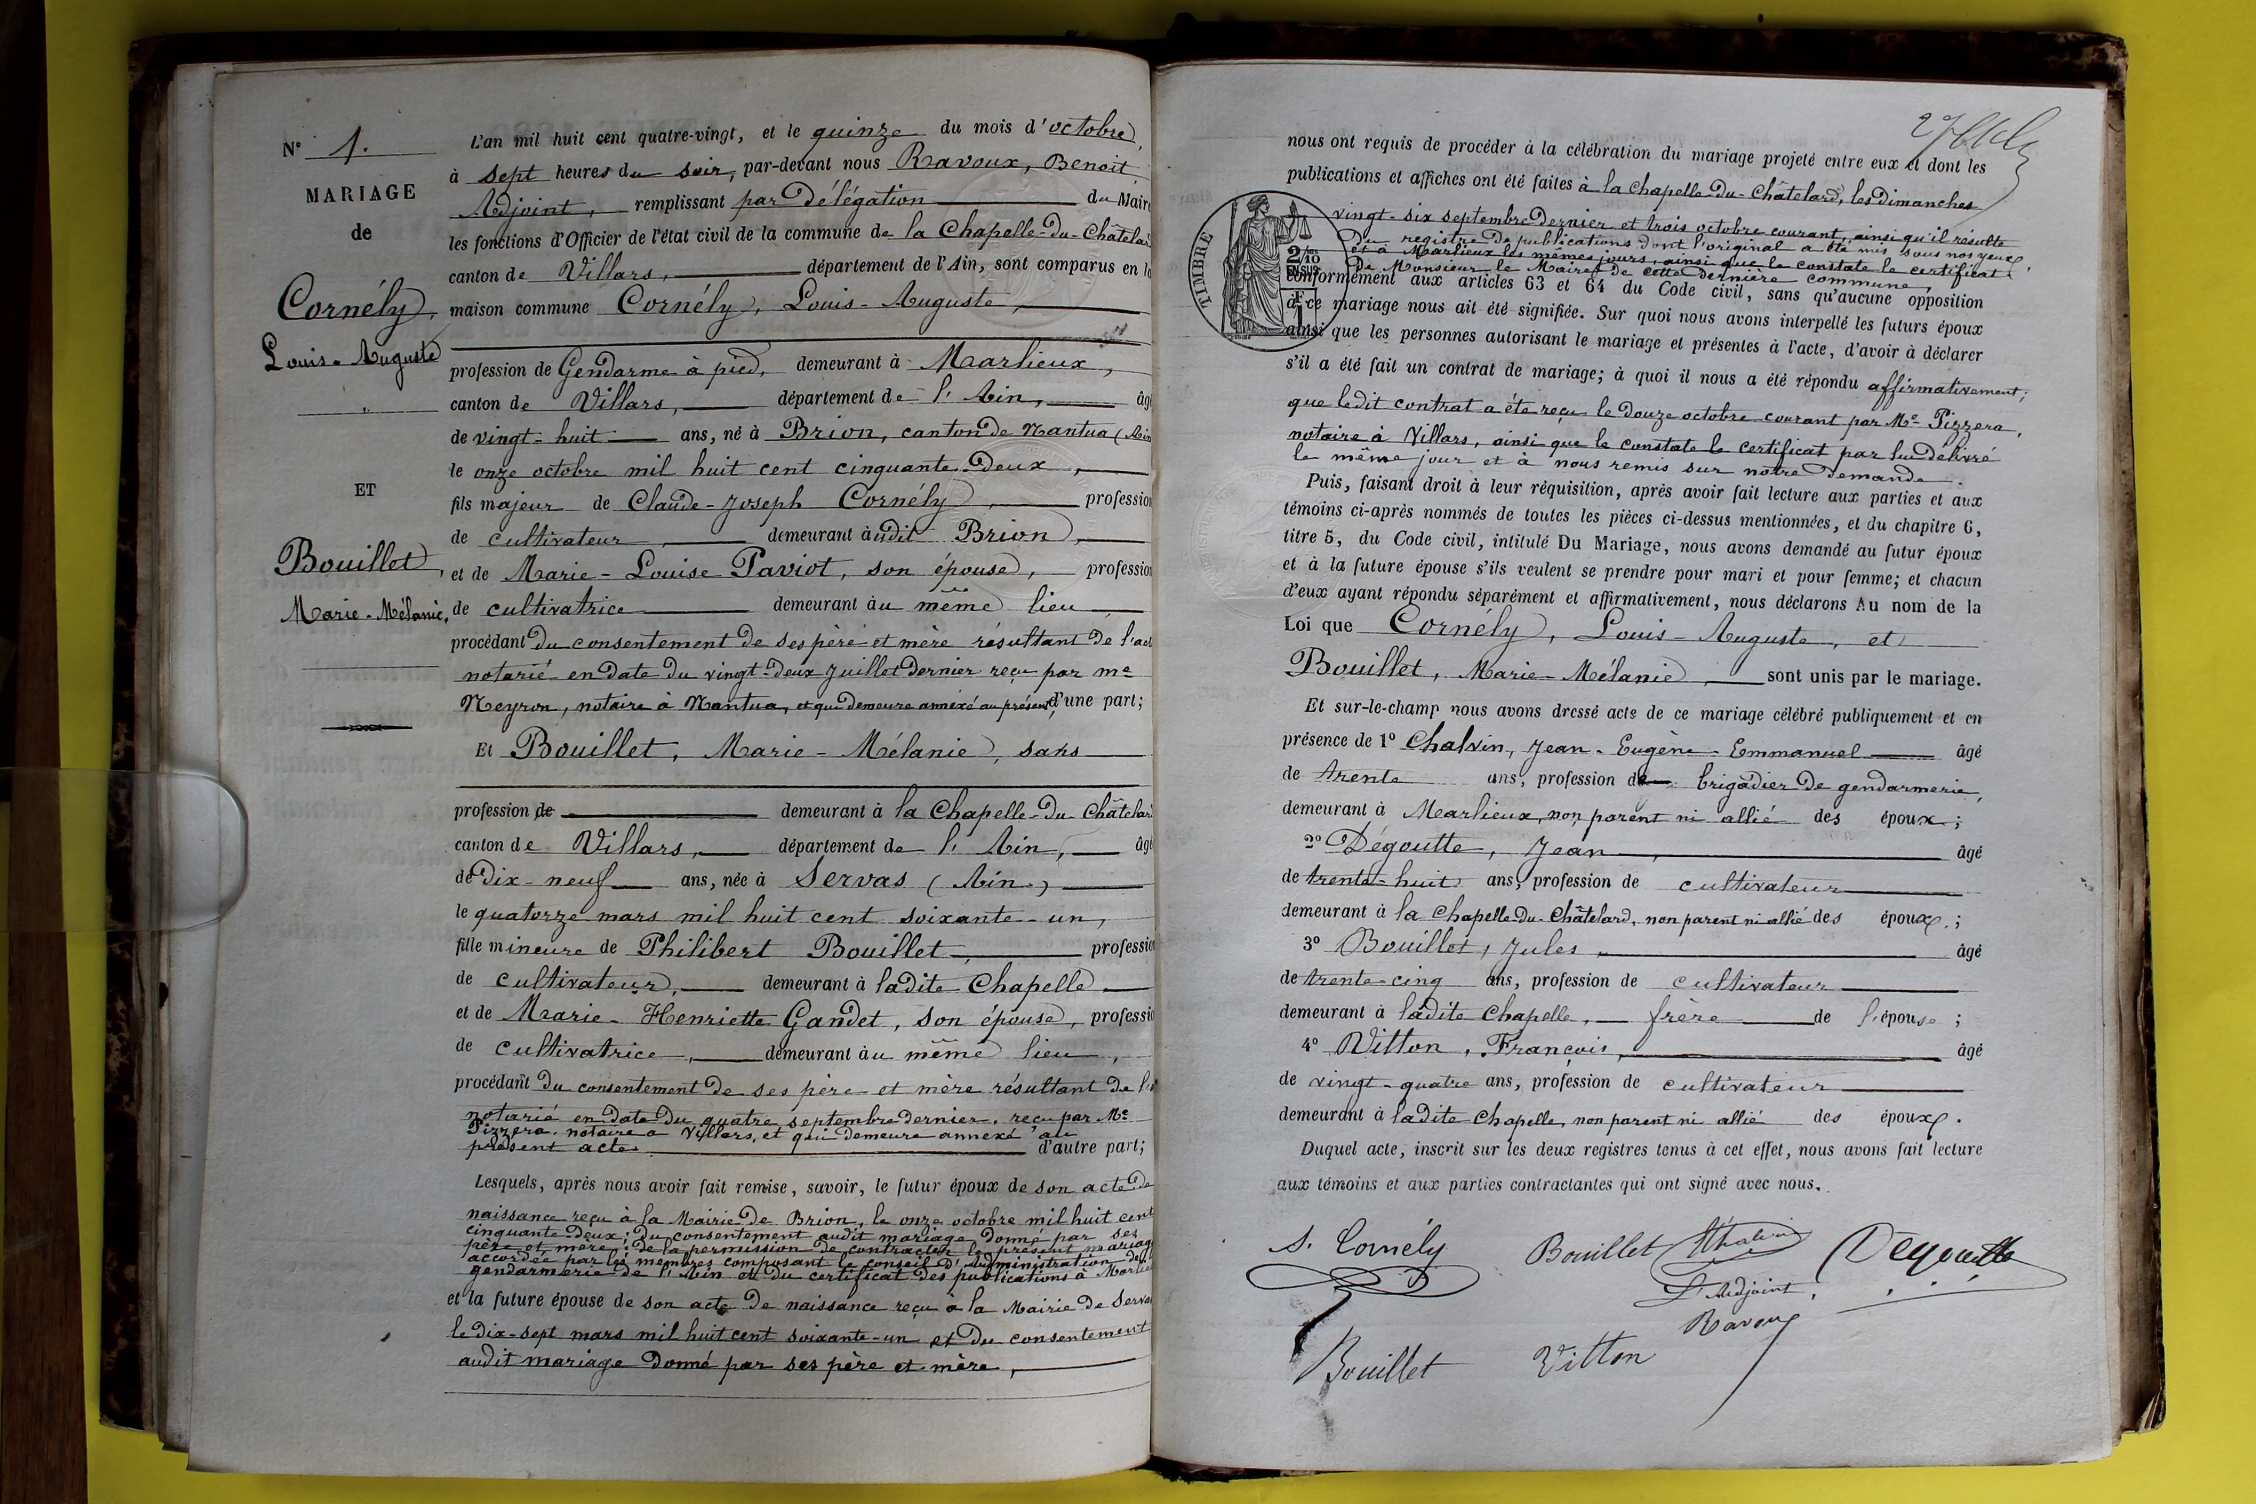 N° 1.
MARIAGE
de
Cornély,
Louis-Auguste
ET
Bouillet,
Marie-Mélanie,
L'an mil huit cent quatre-vingt, et le quinze du mois d'octobre,
à sept heures du soir, par-devant nous Ravoux, Benoit
Adjoint, remplissant par Délégation du Maire
les fonctions d'Officier de l'état civil de la commune de la Chapelle-du-Châtelard
canton de Villars, département de l'Ain, sont comparus en la
maison commune Cornély, Louis-Auguste,
profession de Gendarme à pied, demeurant à Marlieux,
canton de Villars, département de l'Ain, âgé
de vingt-huit ans, né à Brion, canton de Nantua (Ain
le onze octobre mil huit cent cinquante-Deux,
fils majeur de Claude-Joseph Cornély, profession
de cultivateur, demeurant audit Brion,
et de Marie-Louise Paviot, son épouse, profession
de cultivatrice demeurant au même lieu
procédant du consentement de ses père et mère résultant de l'acte
notarié en date du vingt-deux Juillet dernier reçu par me
Neyron, notaire à Nantua, et qui demeure annexé au présent, d'une part;
Et Bouillet, Marie-Mélanie, sans
profession de demeurant à la Chapelle-du-Châtelard
canton de Villars, département de l'Ain, âgé
de Dix-neuf ans, née à Servas (Ain)
le quatorze mars mil huit cent soixante-un,
fille mineure de Philibert Bouillet, profession
de cultivateur, demeurant à ladite Chapelle
et de Marie-Henriette Gandet, son épouse, profession
de cultivatrice, demeurant au même lieu,
procédant du consentement de ses père et mère résultant de l'
notarié en date du quatre septembre dernier, reçu par Me
Pizzera, notaire à Villars, et qui demeure annexé au
présent acte d'autre part;
Lesquels, après nous avoir fait remise, savoir, le futur époux de son acte de
naissance reçu à la Mairie de Brion, le onze octobre mil huit cent
cinquante deux; du consentement audit mariage donné par ses
père et mère; de la permission de contracter le présent mariage
accordée par les membres composant le conseil d'Administration de
gendarmerie de l'Ain et du certificat des publications à Marlieux
et la future épouse de son acte de naissance reçu à la Mairie de Servas
le dix-sept mars mil huit cent soixante-un et du consentement
audit mariage donné par ses père et mère,
nous ont requis de procéder à la célébration du mariage projeté entre eux et dont les
publications et affiches ont été faites à la Chapelle-du-Châtelard, les Dimanches
vingt-six septembre dernier et trois octobre courant, ainsi qu'il résulte
du registre de publications dont l'original a été mis sous nos yeux,
et à Marlieux les mêmes jours, ainsi que le constate le certificat
de Monsieur le Maire de cette dernière commune,
TIMBRE
2/10
EN SUS
conformément aux articles 63 et 64 du Code civil, sans qu'aucune opposition
à ce mariage nous ait été signifiée. Sur quoi nous avons interpellé les futurs époux
ainsi que les personnes autorisant le mariage et présentes à l'acte, d'avoir à déclarer
s'il a été fait un contrat de mariage; à quoi il nous a été répondu affirmativement;
que ledit contrat a été reçu le douze octobre courant par Me Pizzera,
notaire à Villars, ainsi que le constate le certificat par lui délivré
le même jour et à nous remis sur notre demande.
Puis, faisant droit à leur réquisition, après avoir fait lecture aux parties et aux
témoins ci-après nommés de toutes les pièces ci-dessus mentionnées, et du chapitre 6,
titre 5, du Code civil, intitulé Du Mariage, nous avons demandé au futur époux
et à la future épouse s'ils veulent se prendre pour mari et pour femme; et chacun
d'eux ayant répondu séparément et affirmativement, nous déclarons Au nom de la
Loi que Cornély, Louis-Auguste, et
Bouillet, Marie-Mélanie, sont unis par le mariage.
Et sur-le-champ nous avons dressé acte de ce mariage célébré publiquement et en
présence de 1° Chalvin, Jean-Eugène-Emmanuel âgé
de trente ans, profession de brigadier de gendarmerie,
demeurant à Marlieux, non parent ni allié des époux;
2° Dégoutte, Jean, âgé
de trente-huit ans, profession de cultivateur
demeurant à la Chapelle-du-Châtelard, non parent ni allié des époux.;
3° Bouillet, Jules, âgé
de trente-cinq ans, profession de cultivateur
demeurant à ladite Chapelle, frère de l'épouse;
4° Vitton, François, âgé
de vingt-quatre ans, profession de cultivateur
demeurant à ladite Chapelle, non parent ni allié des époux.
Duquel acte, inscrit sur les deux registres tenus à cet effet, nous avons fait lecture
aux témoins et aux parties contractantes qui ont signé avec nous.
Cornély Bouillet Chalvin Degoutte
L'Adjoint,
Ravoux
Bouillet Vitton